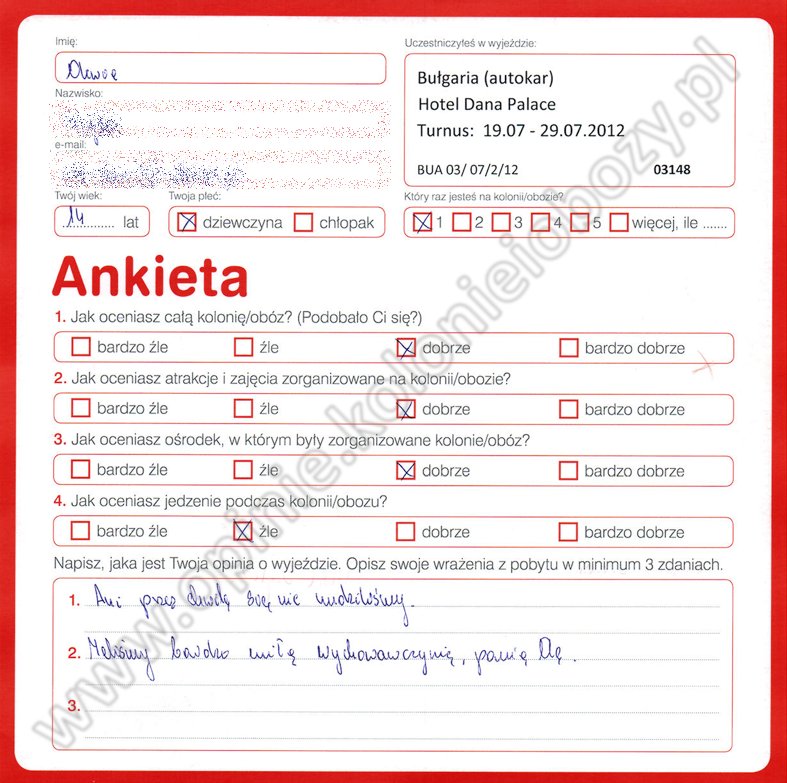 Imię:
Uczestniczyłeś w wyjeździe:
Bułgaria (autokar)
Hotel Dana Palace
Turnus: 19.07 - 29.07.2012
BUA 03/ 07/2/12 03148
Nazwisko:
e-mail:
Twój wiek:
14 lat
Twoja płeć:
dziewczyna chłopak
Który raz jesteś na kolonii/obozie?
1 2 3 4 5 więcej, ile .......
Ankieta
1. Jak oceniasz całą kolonię/obóz? (Podobało Ci się?)
bardzo źle źle dobrze bardzo dobrze
2. Jak oceniasz atrakcje i zajęcia zorganizowane na kolonii/obozie?
bardzo źle źle dobrze bardzo dobrze
3. Jak oceniasz ośrodek, w którym były zorganizowane kolonie/obóz?
bardzo źle źle dobrze bardzo dobrze
4. Jak oceniasz jedzenie podczas kolonii/obozu?
bardzo źle źle dobrze bardzo dobrze
Napisz, jaka jest Twoja opinia o wyjeździe. Opisz swoje wrażenia z pobytu w minimum 3 zdaniach.
1. Ani przez chwilę się nie nudziliśmy.
2. Mieliśmy bardzo miłą wychowawczynię, panią
3.
www.opinie.kolonieiobozy.pl